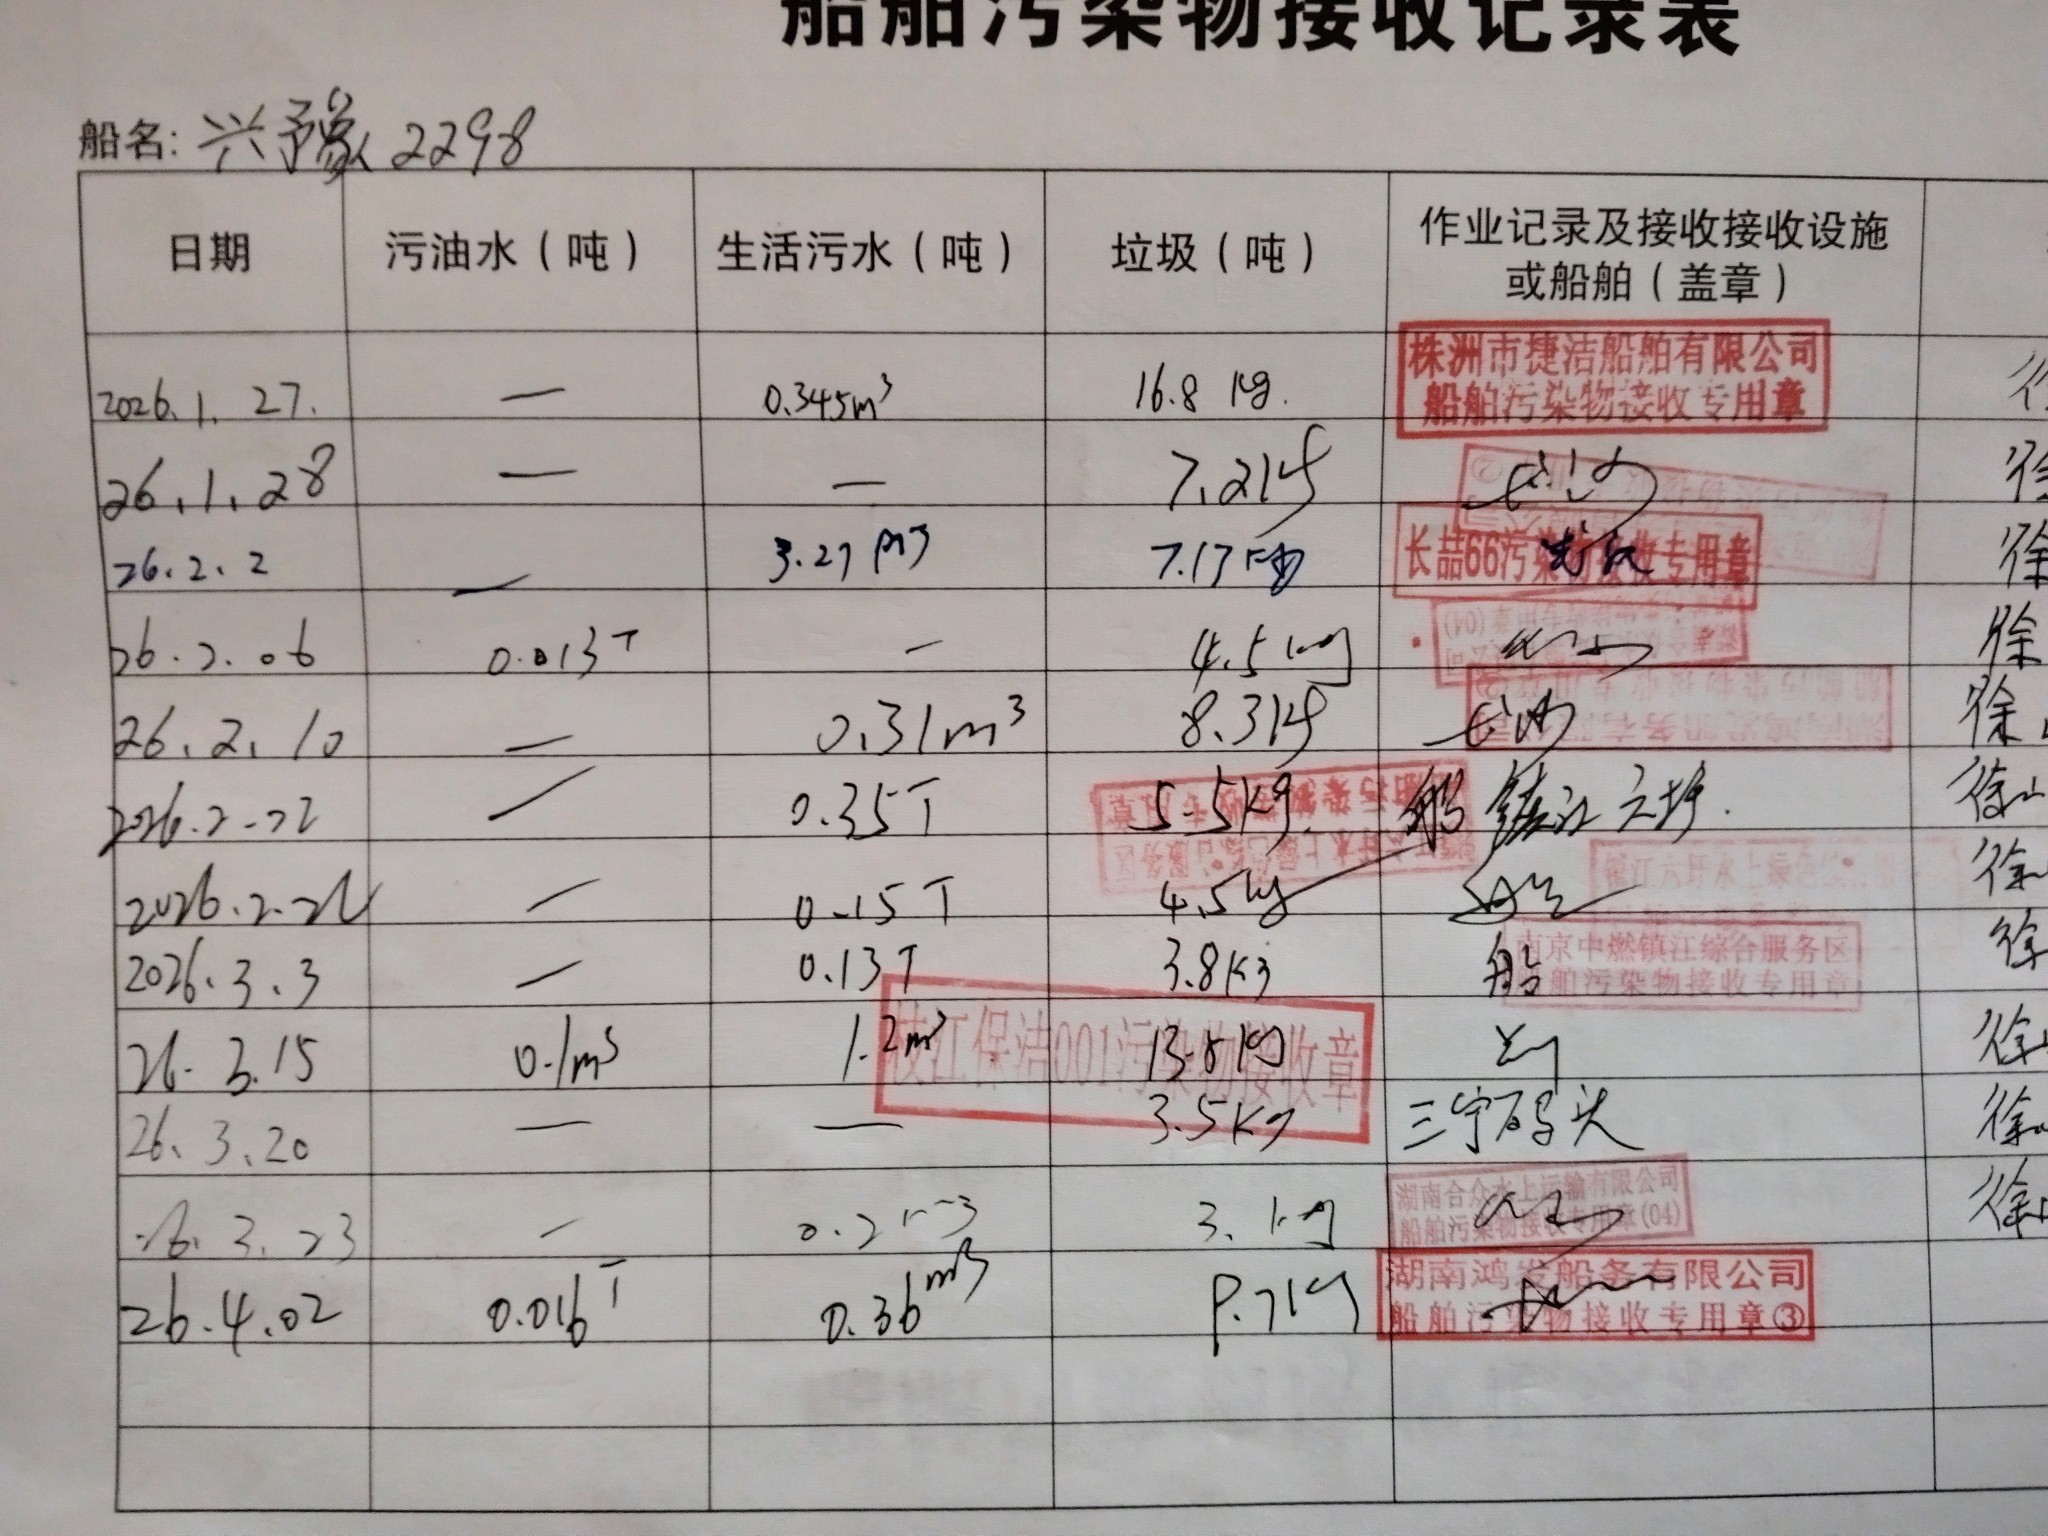 船舶污染物接收记录表
船名: 兴豫 2298
日期 污油水（吨） 生活污水（吨） 垃圾（吨） 作业记录及接收接收设施
或船舶（盖章）
2026.1.27. — 0.345m³ 16.8 kg.
株洲市捷洁船舶有限公司
船舶污染物接收专用章
26.1.28 — — 7.2kg 长沙
26.2.2 — 3.27 m³ 7.17kg
长喆66污染物接收专用章
26.2.06 0.013T — 4.5kg
26.2.10 — 0.31m³ 8.3kg 长沙
2026.2.22 — 0.35T 5.5kg. 船 镇江六圩.
2026.2.22 — 0.15T 4.5kg
2026.3.3 — 0.13T 3.8kg 船
南京中燃镇江综合服务区
船舶污染物接收专用章
26.3.15 0.1m³ 1.2m³ 13.8kg
枝江保洁001污染物接收章
26.3.20 — — 3.5kg 三宁码头
26.3.23 — 0.2m³ 3.1kg
湖南合众水上运输有限公司
船舶污染物接收专用章(04)
26.4.02 0.016T 0.36m³ 9.7kg
湖南鸿发船务有限公司
船舶污染物接收专用章③